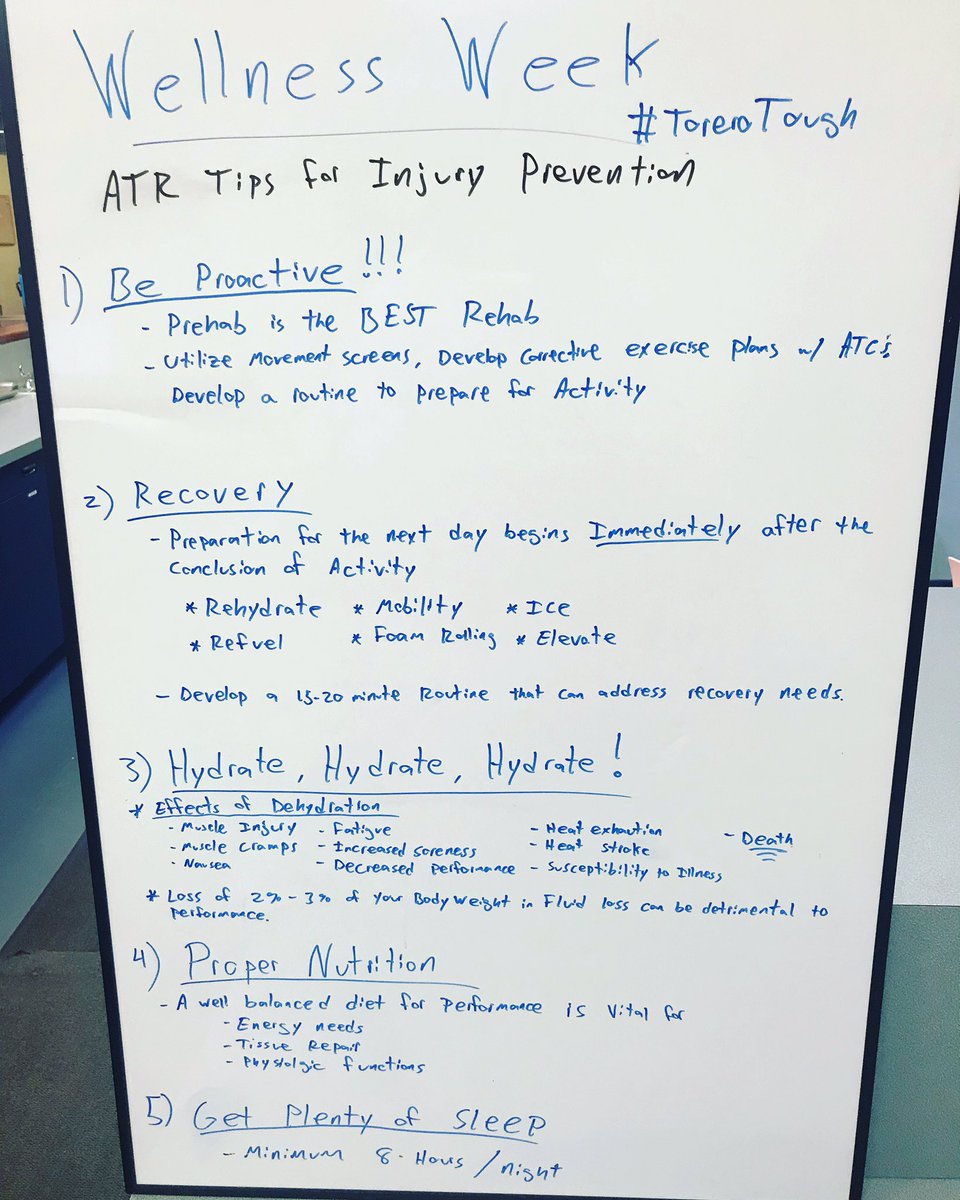 Wellness Week
#ToreroTough
ATR Tips for Injury Prevention
1) Be Proactive!!!
- Prehab is the BEST Rehab
- Utilize Movement Screens, Develop Corrective exercise plans w/ ATC's
Develop a routine to prepare for Activity
2) Recovery
- Preparation for the next day begins Immediately after the
Conclusion of Activity
* Rehydrate * Mobility * ICE
* Refuel * Foam Rolling * Elevate
- Develop a 15-20 minute Routine that can address recovery needs.
3) Hydrate, Hydrate, Hydrate!
* Effects of Dehydration
- Muscle Injury - Fatigue - Heat exhaution - Death
- Muscle Cramps - Increased soreness - Heat stroke
- Nausea - Decreased performance - Susceptibility to Illness
* Loss of 2% - 3% of your Body Weight in Fluid loss can be detrimental to
performance.
4) Proper Nutrition
- A well balanced diet for performance is vital for
- Energy needs
- Tissue Repair
- Physiolgic functions
5) Get Plenty of Sleep
- Minimum 8-Hours/night